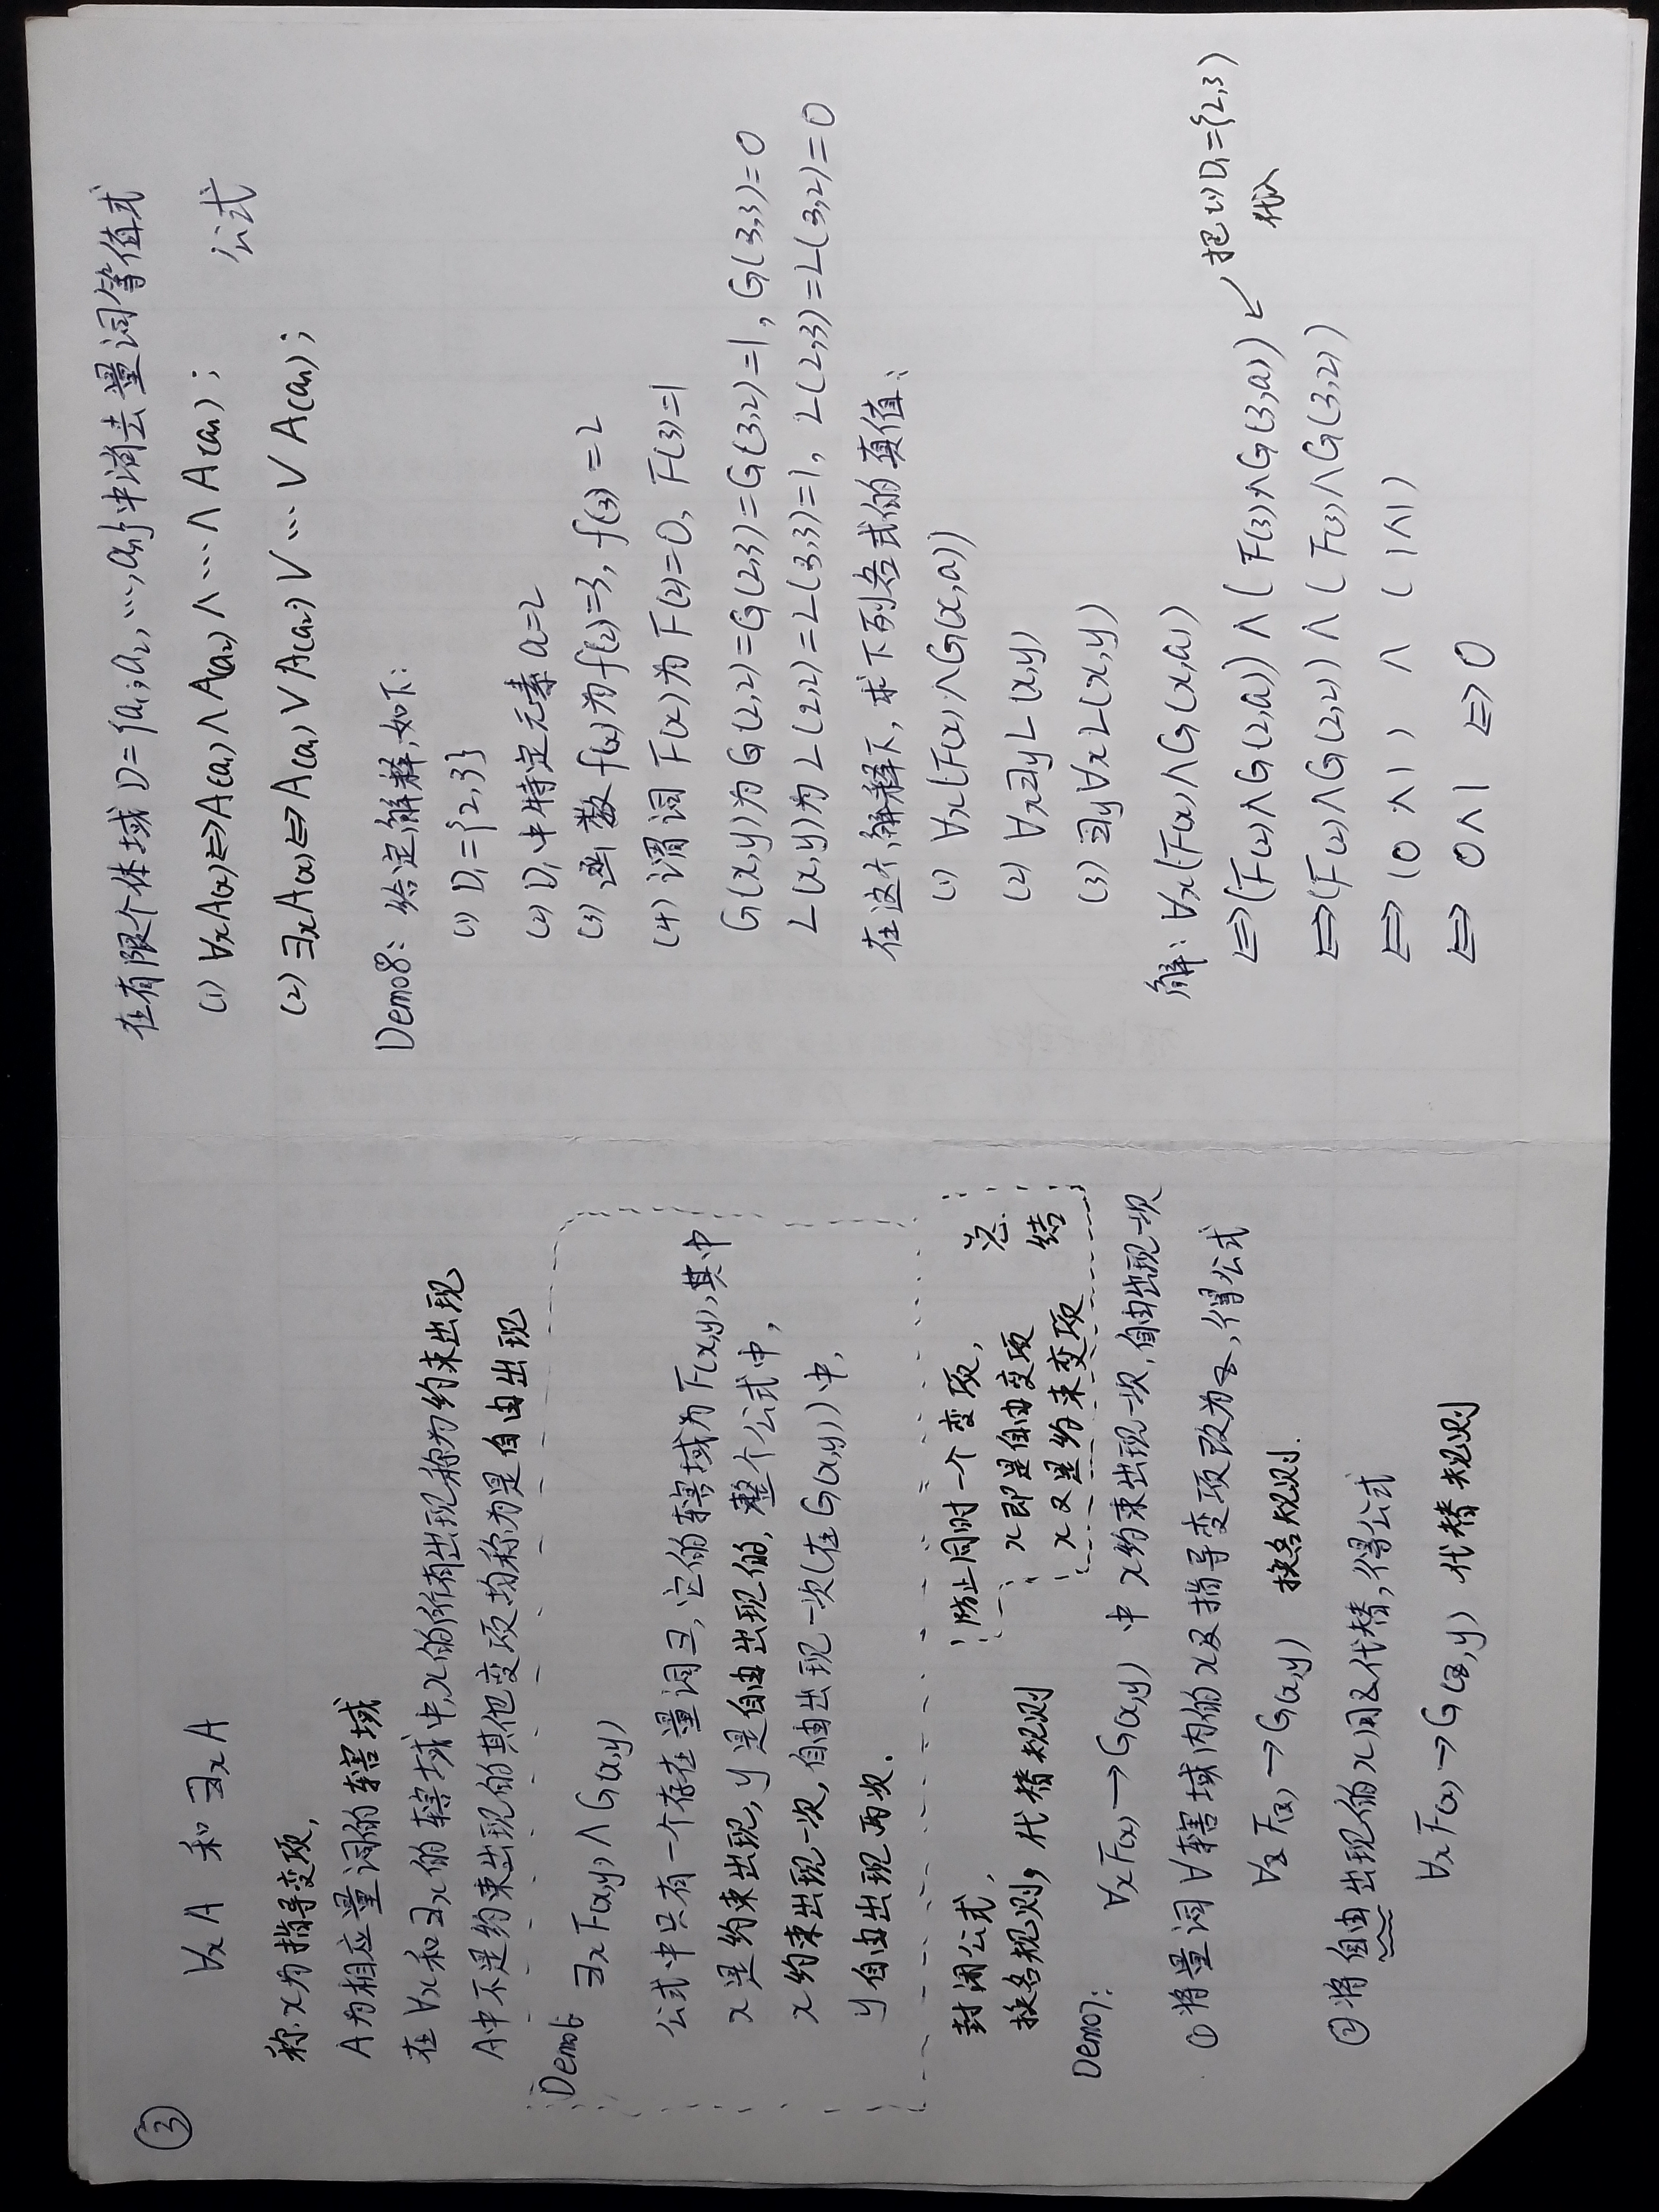 ③
∀xA 和 ∃xA
称x为指导变项,
A为相应量词的辖域
在∀x和∃x的辖域中,x的所有出现称为约束出现
A中不是约束出现的其他变项均称为是自由出现
Demo6
∃xF(x,y)∧G(x,y)
公式中只有一个存在量词∃,它的辖域为F(x,y),其中
x是约束出现,y是自由出现的,整个公式中,
x约束出现一次,自由出现一次(在G(x,y))中,
y自由出现两次.
封闭公式,
换名规则,代替规则
防止同时一个变项,
x即是自由变项
x又是约束变项
总结
Demo7:
∀xF(x)→G(x,y) 中x约束出现一次,自由出现一次
①将量词∀辖域内的x及指导变项改为z,得公式
∀zF(z)→G(x,y) 换名规则.
②将自由出现的x用z代替,得公式
∀xF(x)→G(z,y) 代替规则
在有限个体域D={a₁,a₂,…,aₙ}中消去量词等值式
(1) ∀xA(x)⇔A(a₁)∧A(a₂)∧…∧A(aₙ);
公式
(2) ∃xA(x)⇔A(a₁)∨A(a₂)∨…∨A(aₙ);
Demo8: 给定解释,如下:
(1) D₁={2,3}
(2) D₁中特定元素a=2
(3) 函数f(x)为f(2)=3, f(3)=2
(4) 谓词F(x)为F(2)=0, F(3)=1
G(x,y)为G(2,2)=G(2,3)=G(3,2)=1, G(3,3)=0
L(x,y)为L(2,2)=L(3,3)=1, L(2,3)=L(3,2)=0
在这个解释下,求下列各式的真值:
(1) ∀x(F(x)∧G(x,a))
(2) ∀x∃yL(x,y)
(3) ∃y∀xL(x,y)
解: ∀x(F(x)∧G(x,a))
⇔(F(2)∧G(2,a))∧(F(3)∧G(3,a))
把(1)D₁={2,3)
代入
⇔(F(2)∧G(2,2))∧(F(3)∧G(3,2))
⇔(0∧1) ∧ (1∧1)
⇔ 0∧1 ⇔0